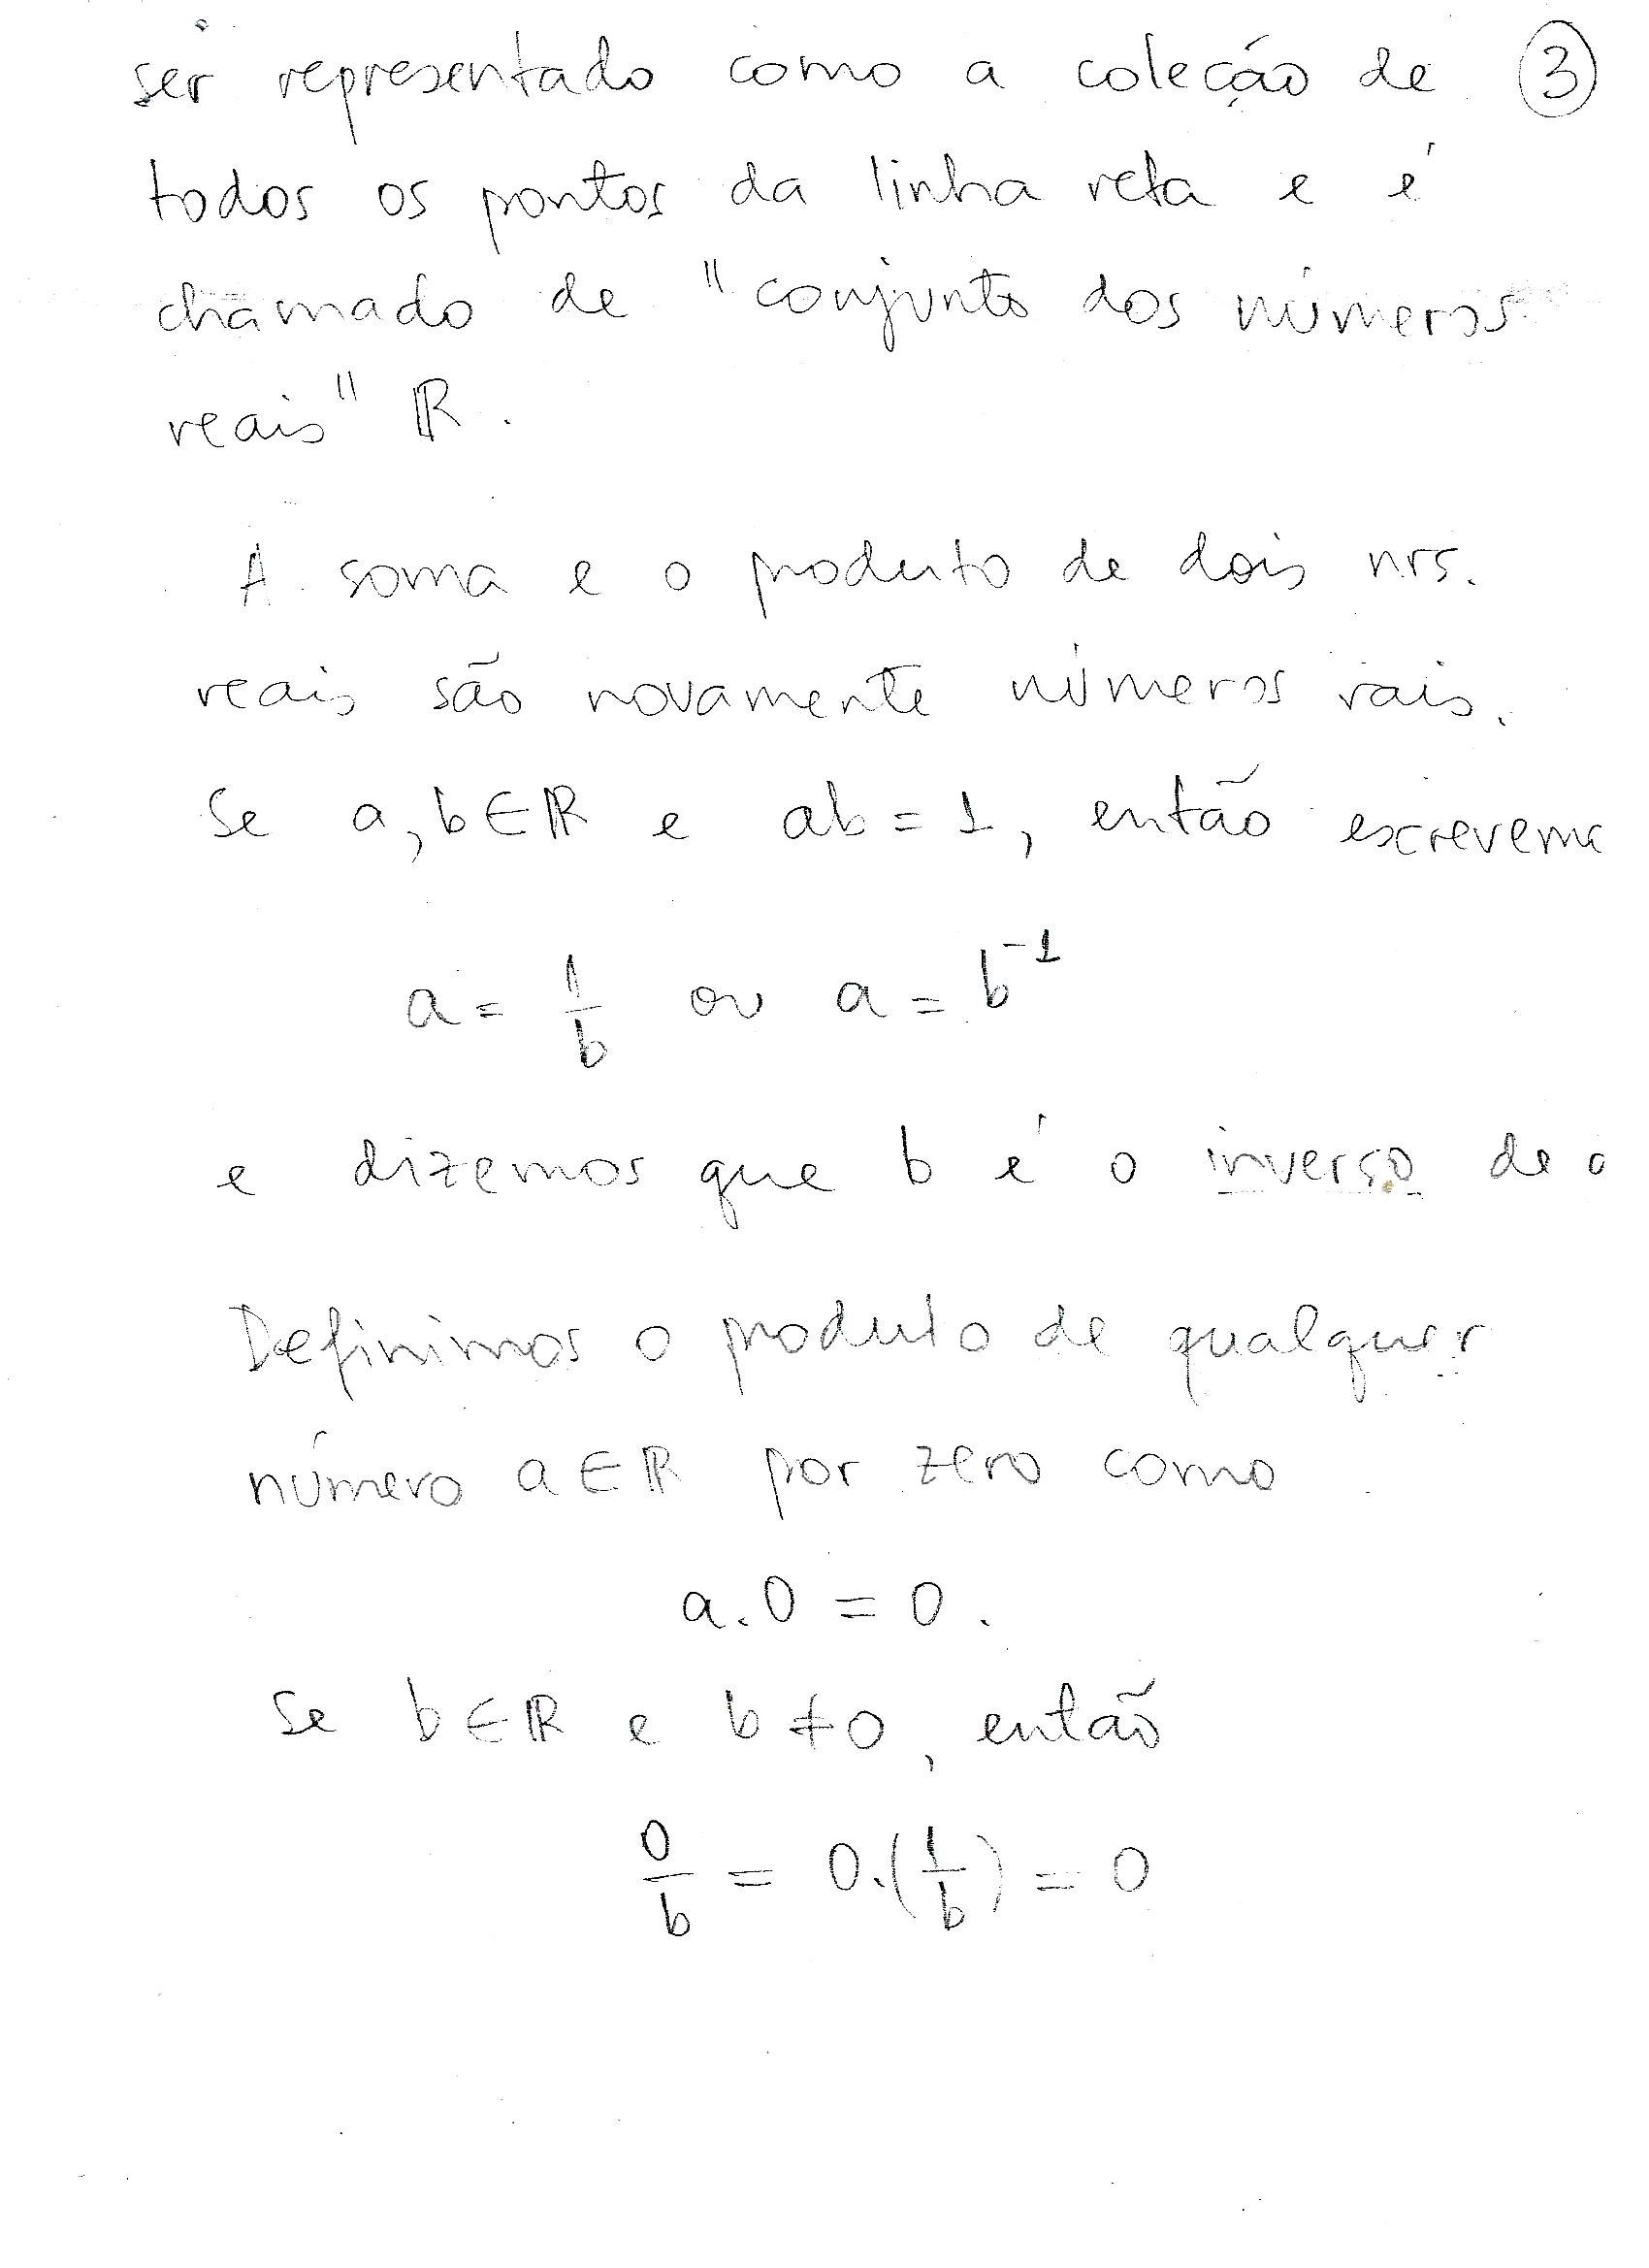 ser representado como a coleção de 3
todos os pontos da linha reta e é
chamado de "conjunto dos números
reais" ℝ.
A soma e o produto de dois nrs.
reais são novamente números rais.
Se a, b ∈ ℝ e ab = 1, então escrevem
a = 1/b ou a = b⁻¹
e dizemos que b é o inverso de
Definimos o produto de qualquer
número a ∈ ℝ por zero como
a.0 = 0.
Se b ∈ ℝ e b ≠ 0, então
0/b = 0.(1/b) = 0